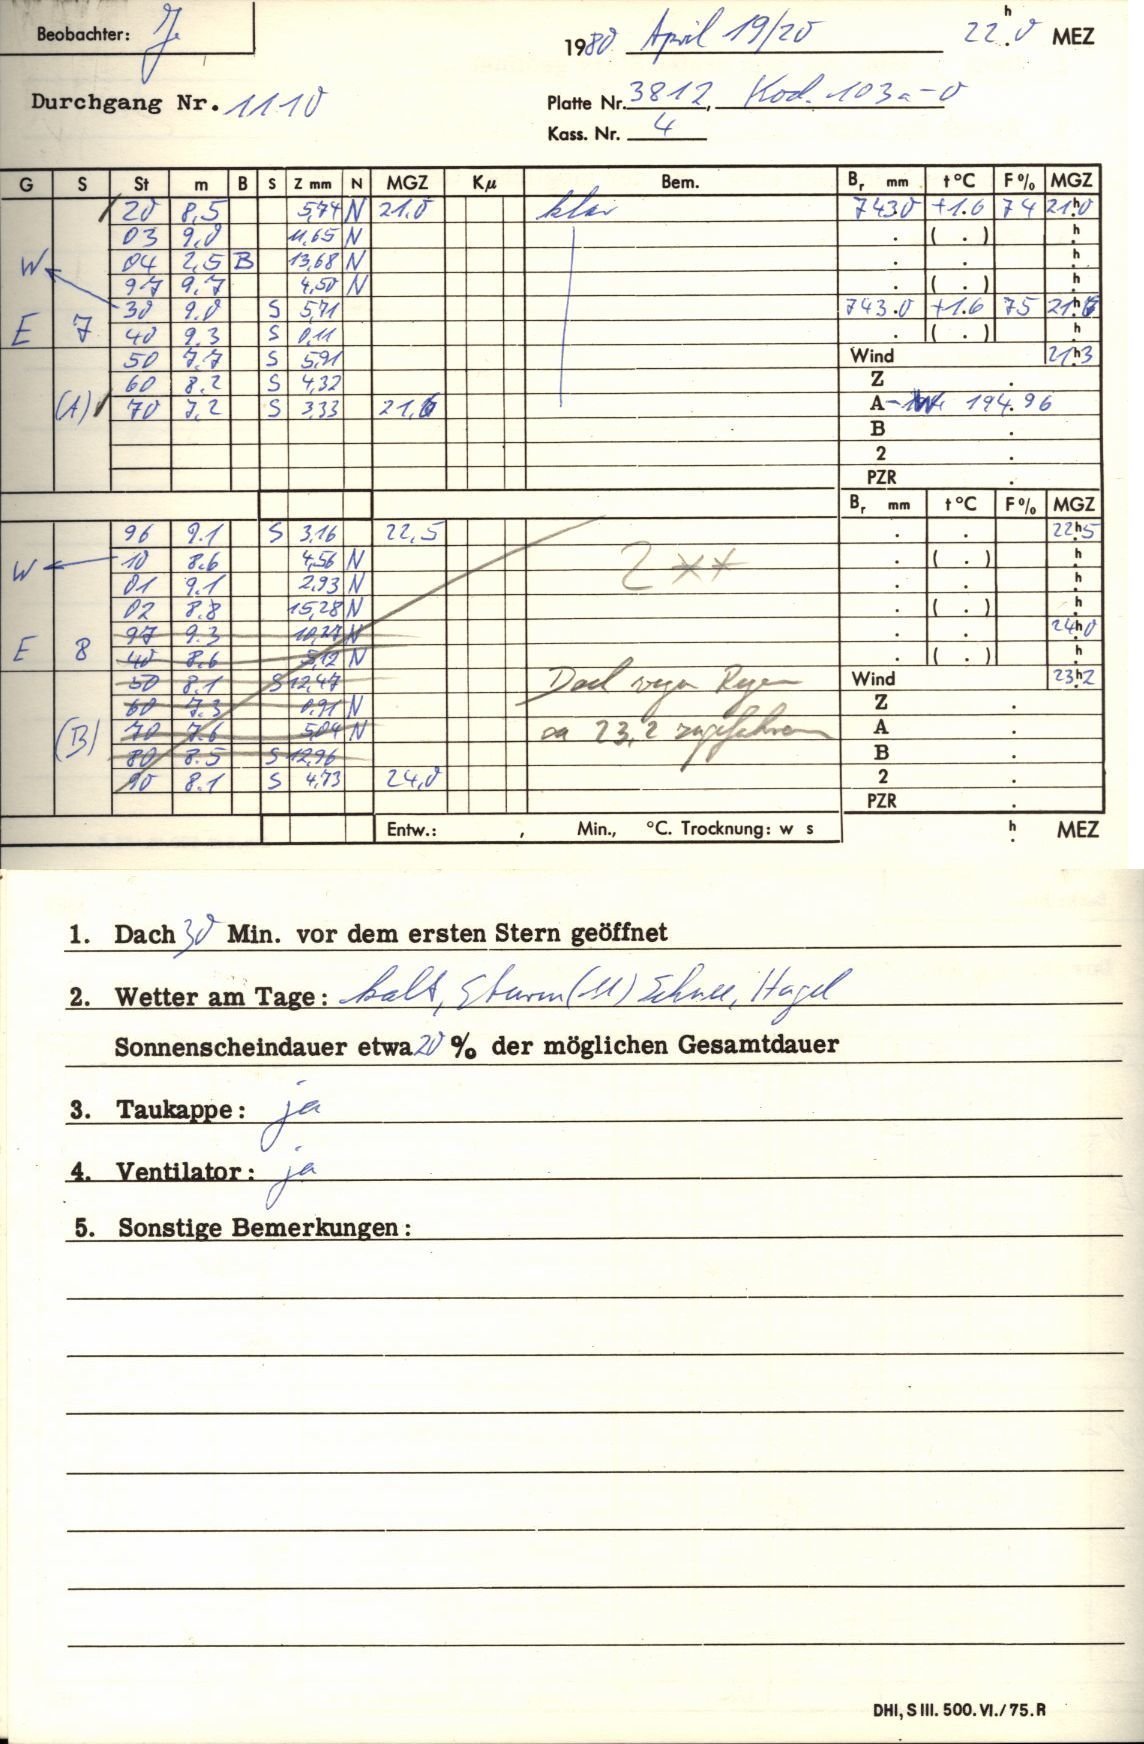 Beobachter: J
1980 April 19/20 22.0 h MEZ
Durchgang Nr. 1110
Platte Nr. 3812, Kod. 103a-0
Kass. Nr. 4
G S St m B S Z mm N MGZ Kμ Bem. Br mm t °C F% MGZ
20 8,5 5,74 N 21.0 klar 743.0 +1.6 74 21h0
03 9.0 11,65 N . ( . ) h
W 04 2,5 B 13,68 N . . h
97 9.7 4,50 N . ( . ) h
30 9.0 S 5,71 743.0 +1.6 75 21h6
E 7 40 9.3 S 0,11 . ( . ) h
50 7.7 S 5,91 Wind 21h3
60 8.2 S 4,32 Z .
(A) 70 7,2 S 3,33 21,6 A 194.96
B .
2 .
PZR .
Br mm t °C F% MGZ
96 9.1 S 3,16 22,5 . . 22h5
W 10 8.6 4,56 N 2 ** . ( . ) h
01 9.1 2,93 N . . h
02 8.8 15,28 N . ( . ) h
97 9.3 10,27 N . . 24h0
E 8 40 8.6 5,12 N . ( . ) h
50 8.1 S 12,47 Dach wegen Regen Wind 23h2
60 7.3 0,91 N Z .
(B) 70 7.6 5,04 N ca 23,2 zugefahren A .
80 8.5 S 12,96 B .
90 8.1 S 4,73 24,0 2 .
PZR .
Entw.: , Min., °C. Trocknung: w s h . MEZ
1. Dach 30 Min. vor dem ersten Stern geöffnet
2. Wetter am Tage: kalt, Sturm (11) Schnee, Hagel
Sonnenscheindauer etwa 20 % der möglichen Gesamtdauer
3. Taukappe: ja
4. Ventilator: ja
5. Sonstige Bemerkungen:
DHI, S III. 500. VI./75. R